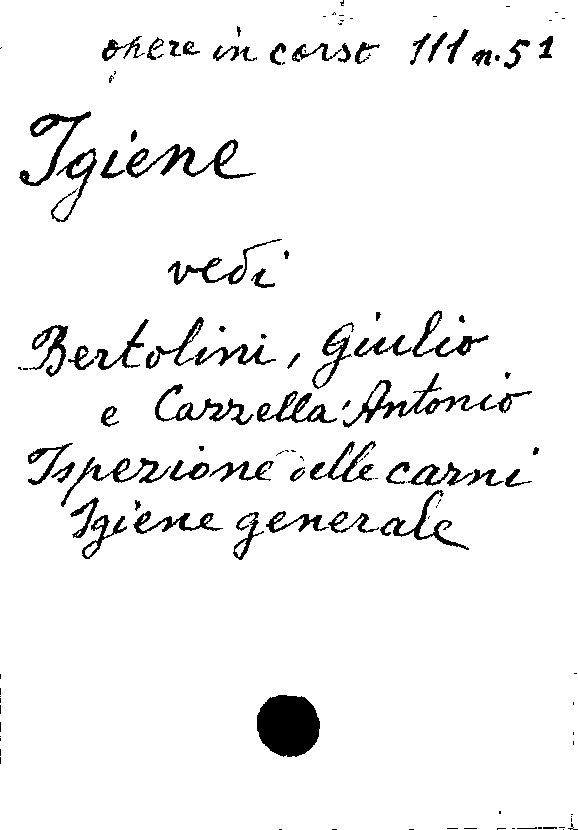 opere in corso 111 n. 51
Igiene
vedi
Bertolini, Giulio
e Cazzella Antonio
Ispezione delle carni
Igiene generale